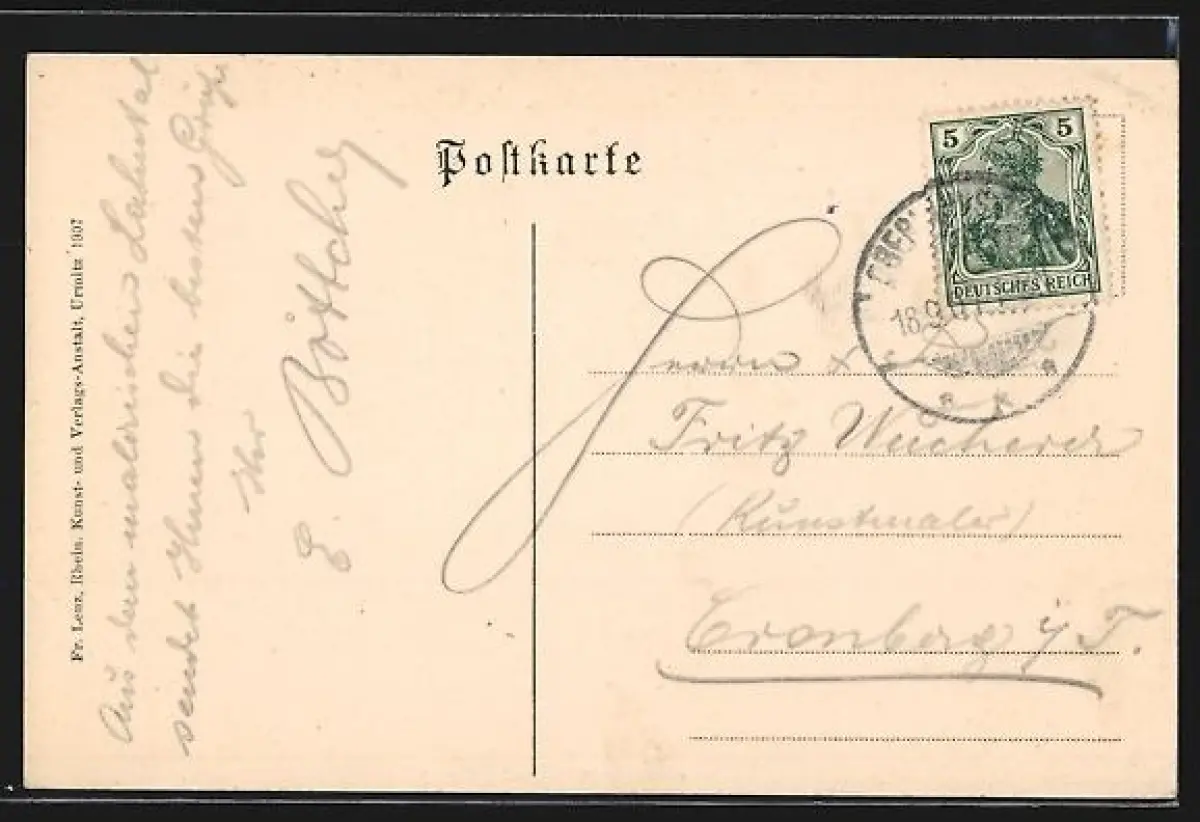 Postkarte
Aus dem malerischen Lahntal
sendet Ihnen die besten Grüße
Ihr
E. Böttcher
Fr. Lenz, Rhein. Kunst- und Verlags-Anstalt, 1907
5 5
DEUTSCHES REICH
18.9
Herrn
Fritz Wucherer
(Kunstmaler)
Cronberg i/T.